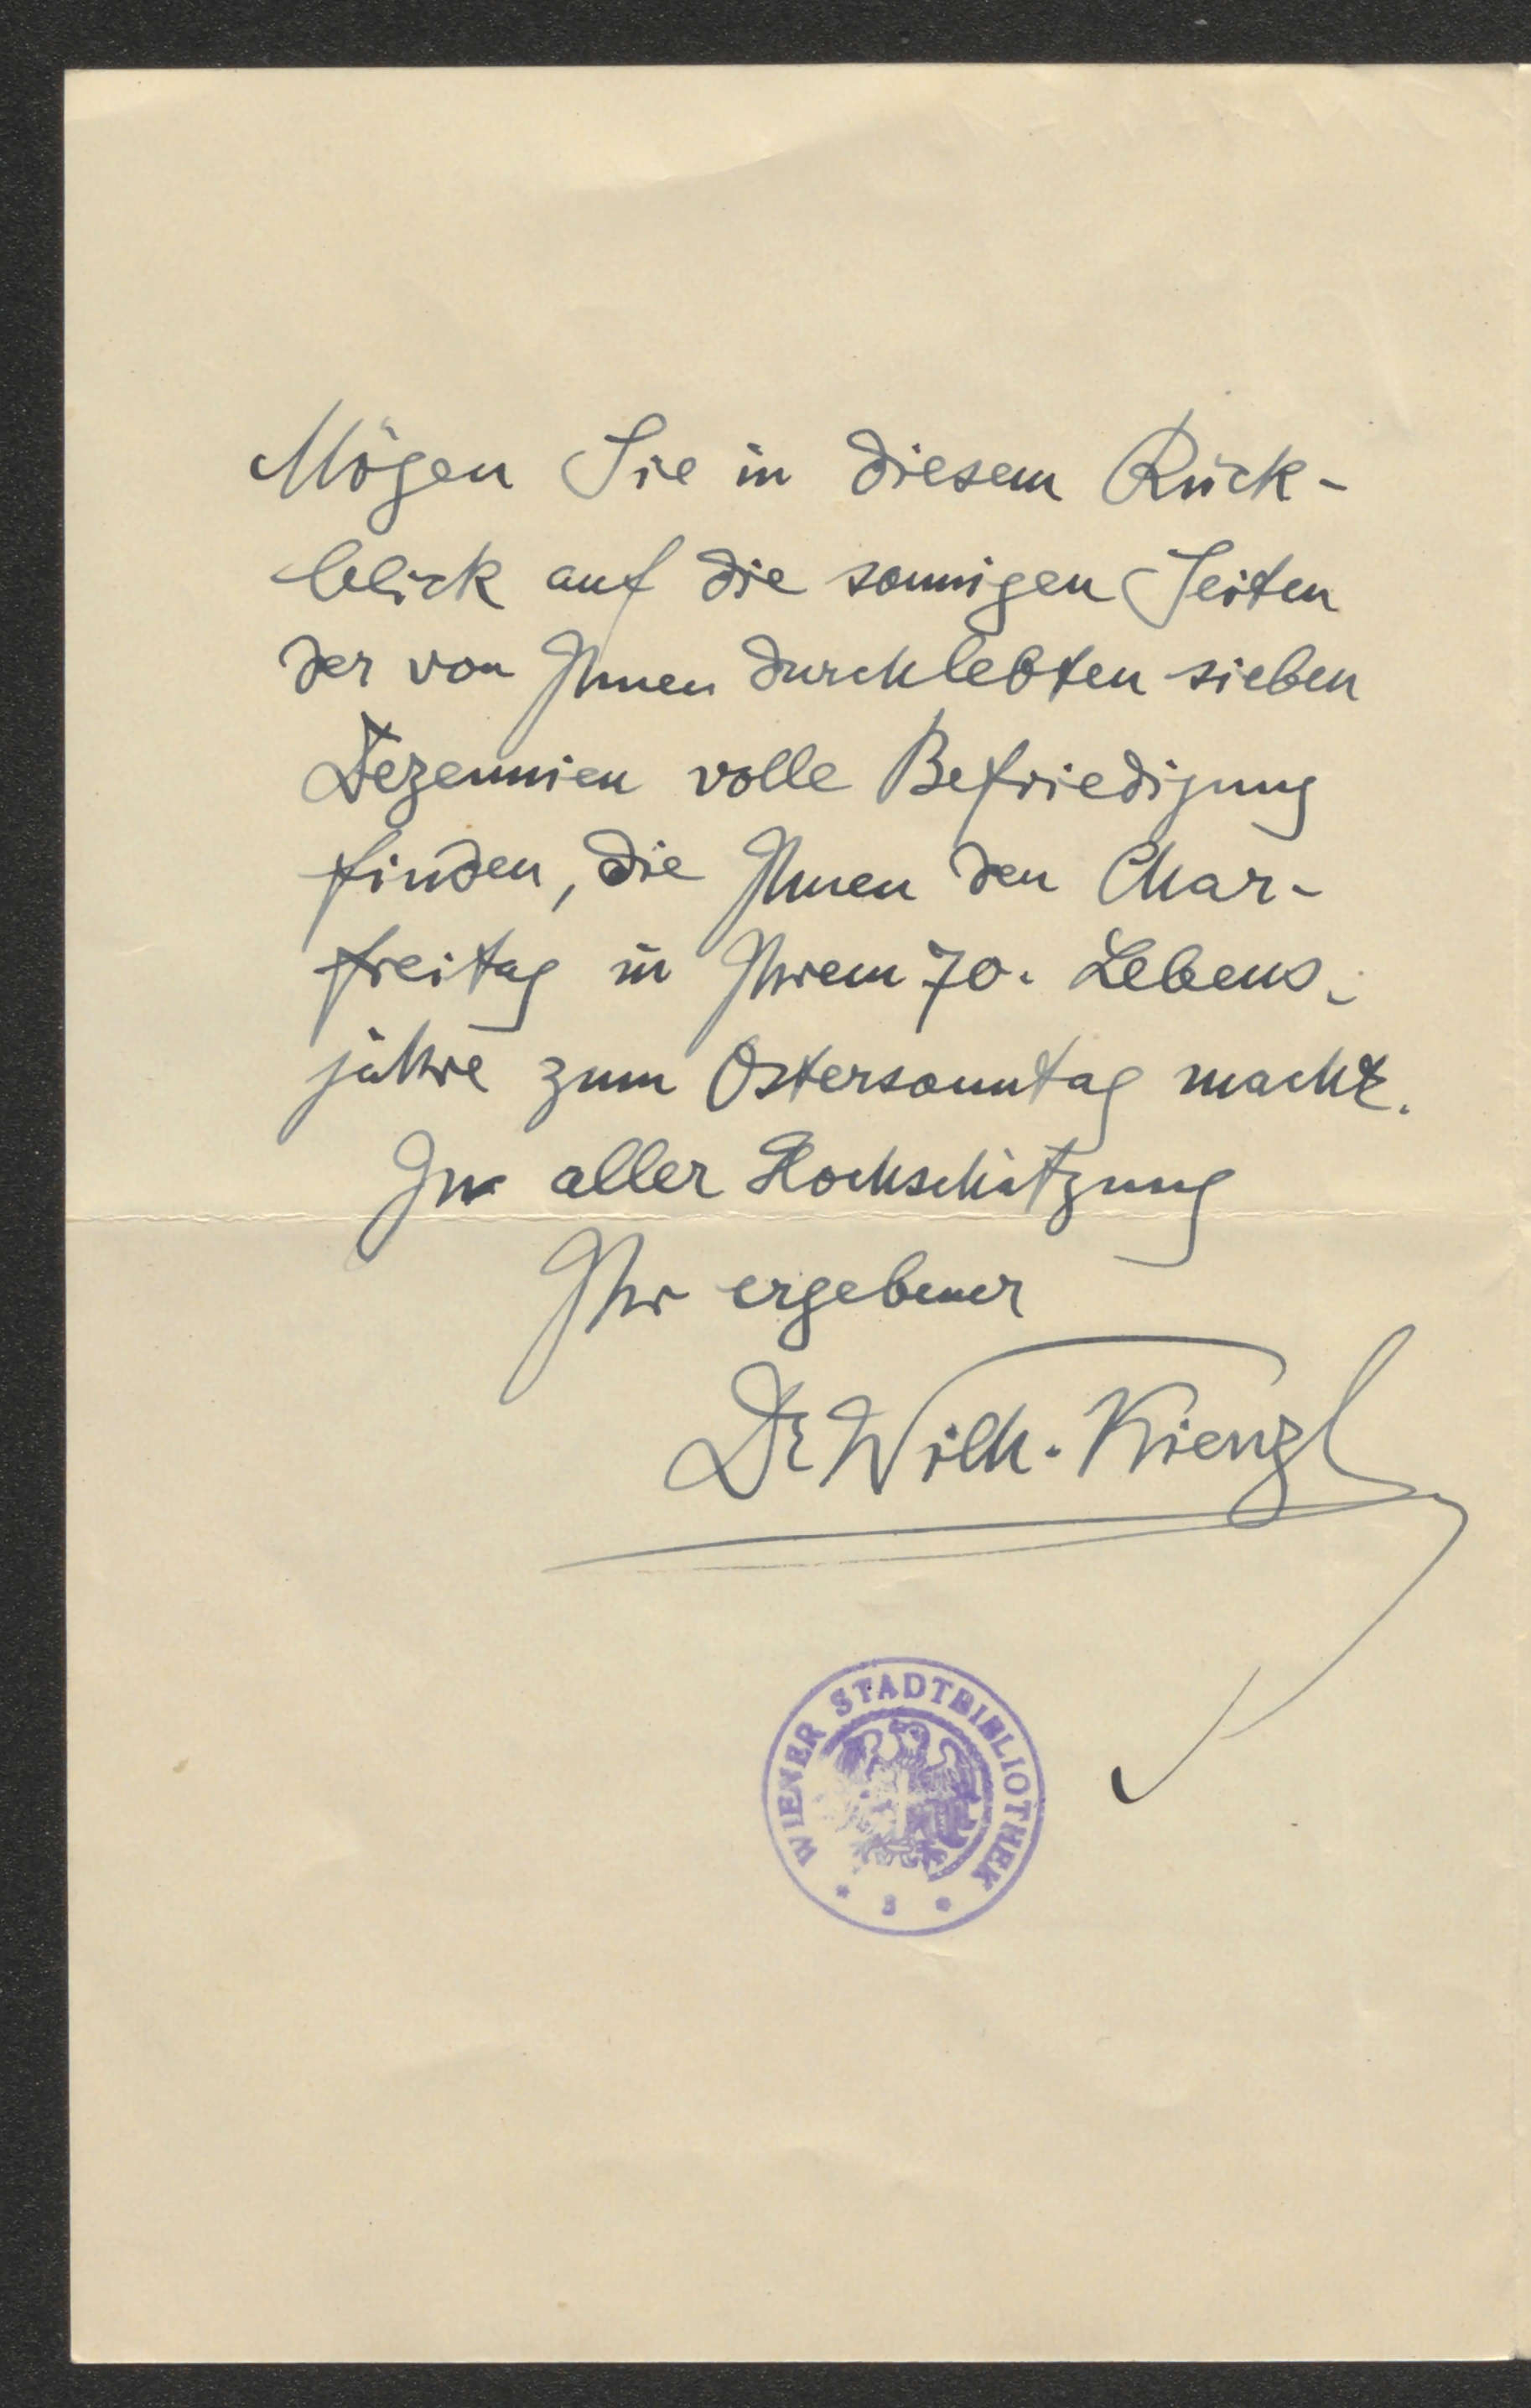 Mögen Sie in diesem Rück-
blick auf die sonnigen Seiten
der von Ihnen durchlebten sieben
Dezennien volle Befriedigung
finden, die Ihnen den Char-
freitag in Ihrem 70. Lebens-
jahre zum Ostersonntag macht.
In aller Hochschätzung
Ihr ergebener
Dr Wilh. Kienzl
WIENER STADTBIBLIOTHEK
* 3 *